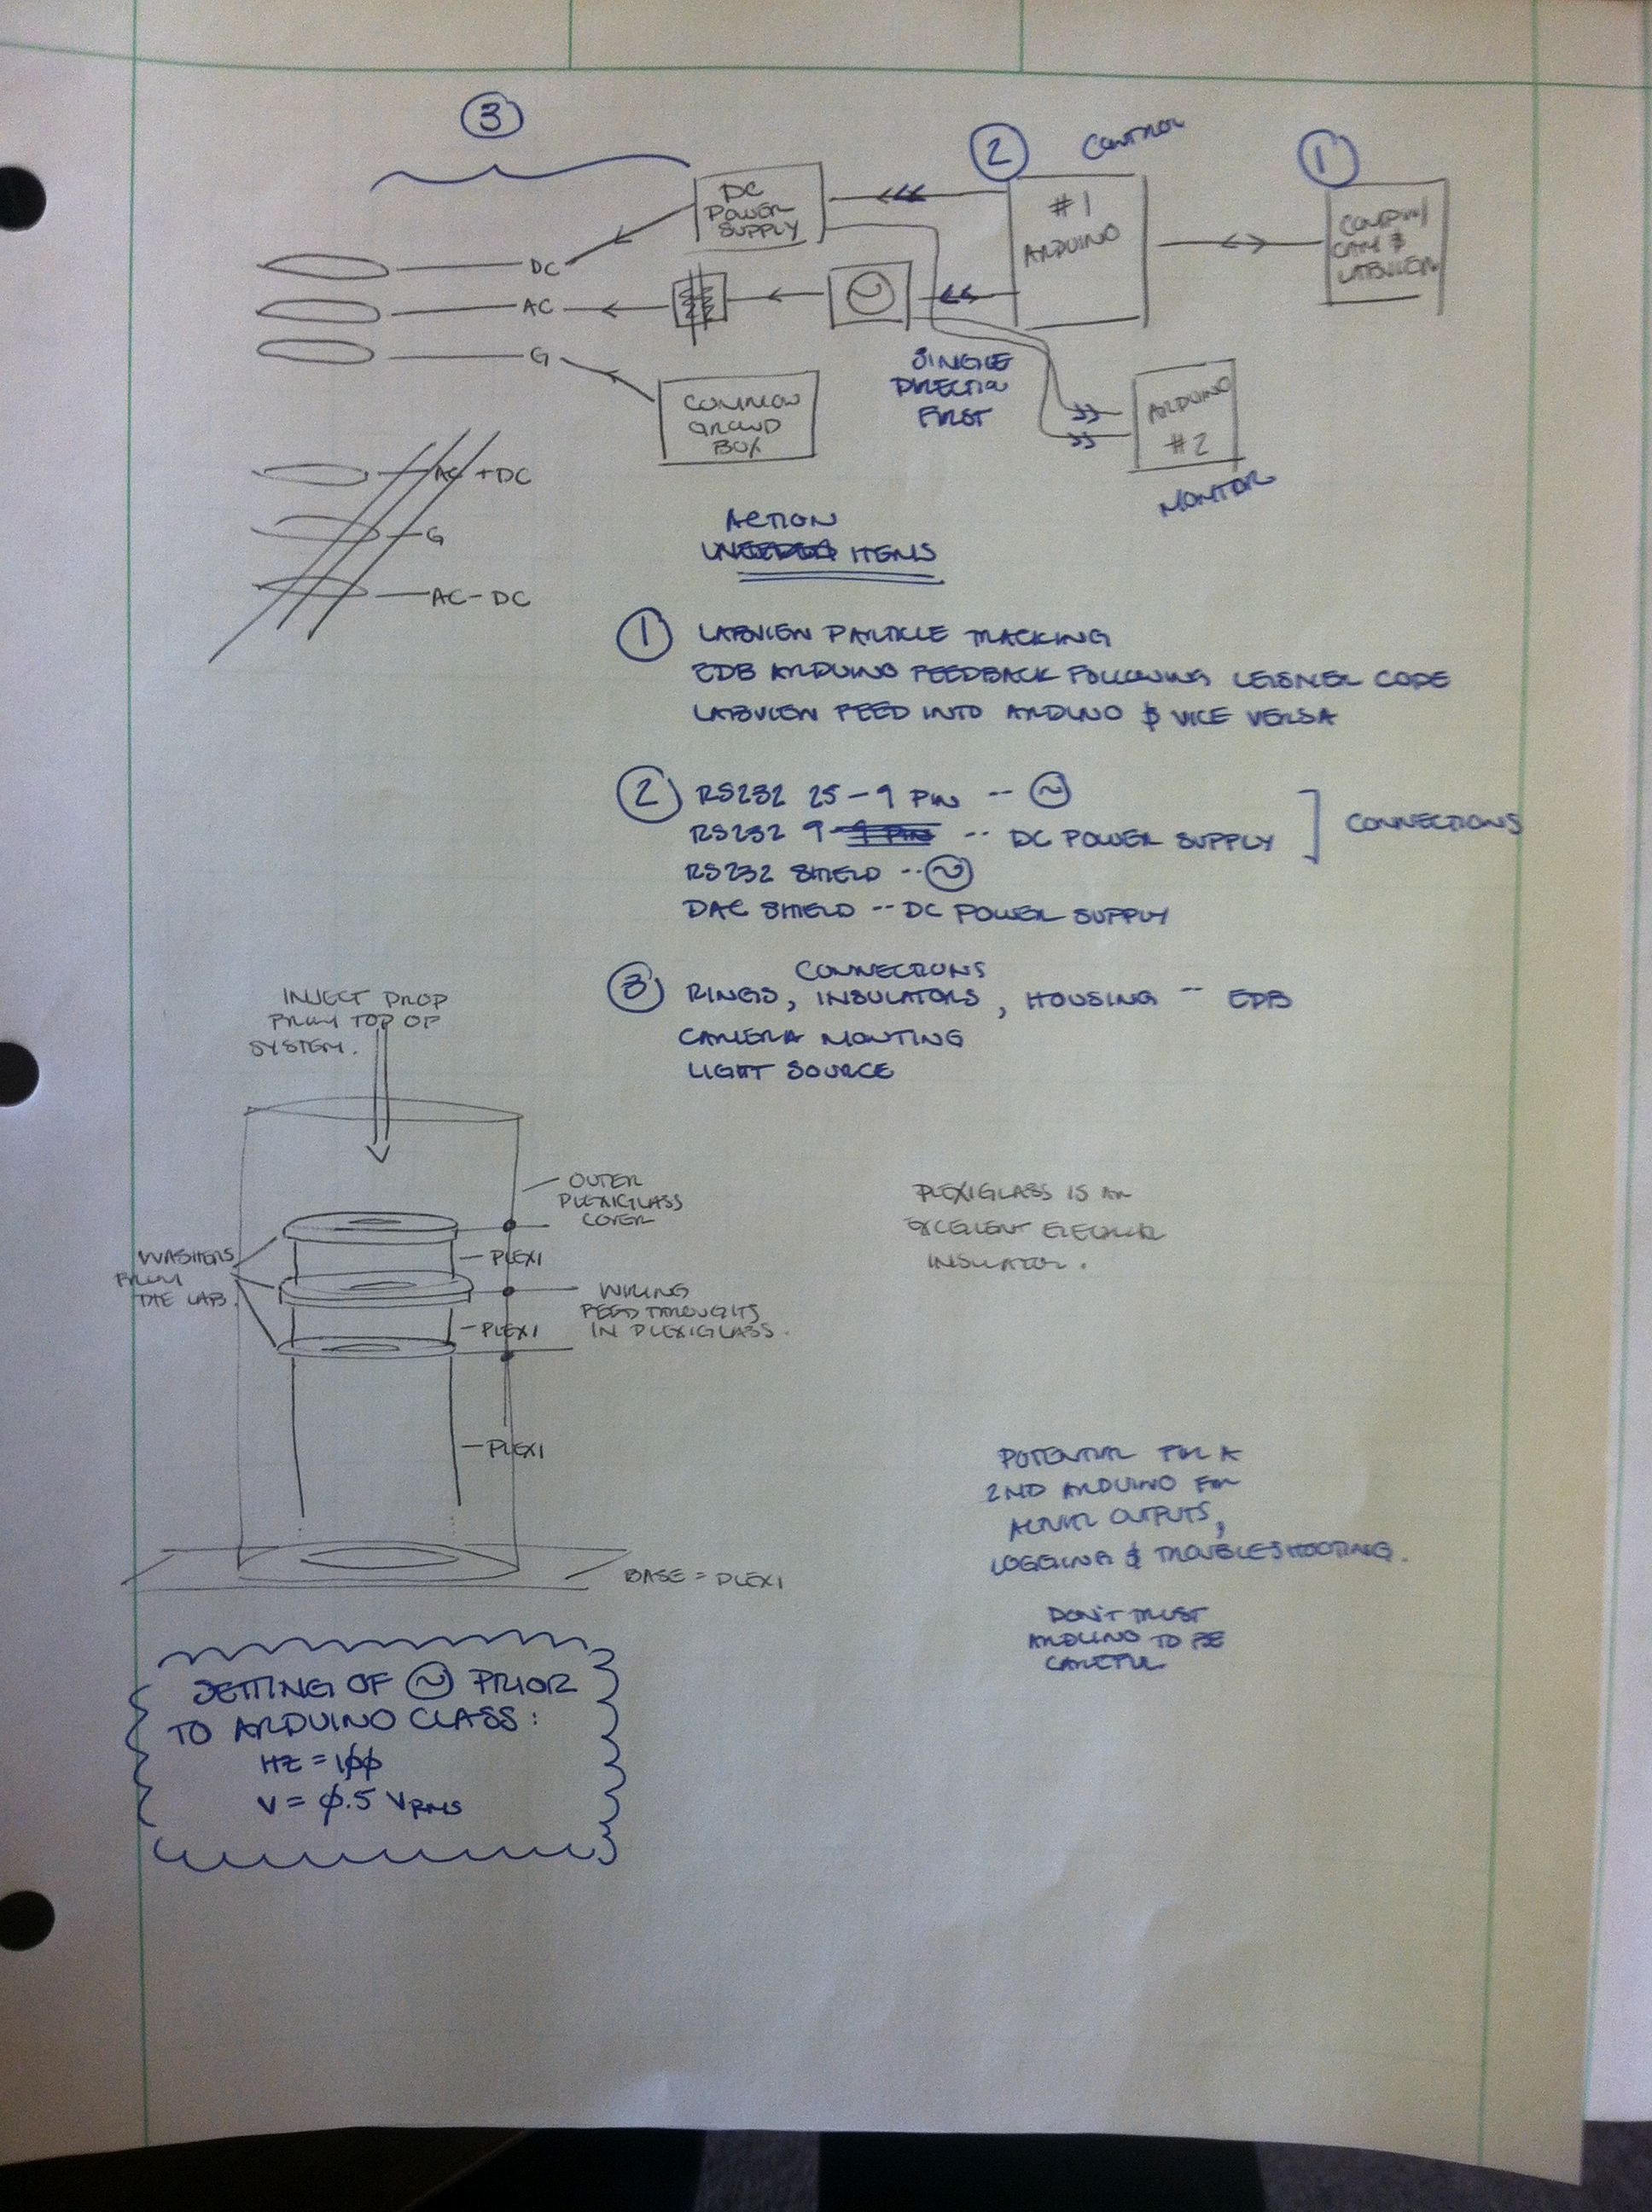 3
2
CONTROL
1
DC
POWER
SUPPLY
#1
ARDUINO
CAM &
LABVIEW
DC
AC
G
COMMON
GROUND
BOX
SINGLE
DIRECTION
FIRST
ARDUINO
#2
MONITOR
AC+DC
G
AC-DC
ACTION
ITEMS
1 LABVIEW PARTICLE TRACKING
EDB ARDUINO FEEDBACK FOLLOWING LEISNER CODE
LABVIEW FEED INTO ARDUINO & VICE VERSA
2 RS232 25-9 PIN --
RS232 9-9 PIN -- DC POWER SUPPLY
CONNECTIONS
RS232 SHIELD --
DAC SHIELD -- DC POWER SUPPLY
CONNECTIONS
3 RINGS, INSULATORS, HOUSING -- EDB
CAMERA MONTING
LIGHT SOURCE
INJECT DROP
FROM TOP OF
SYSTEM.
OUTER
PLEXIGLASS
COVER
WASHERS
FROM
THE LAB.
PLEXI
WIRING
FEED THROUGHS
IN PLEXIGLASS.
PLEXI
PLEXI
BASE = PLEXI
PLEXIGLASS IS AN
EXCELLENT
INSULATOR.
POTENTIAL FOR A
2ND ARDUINO FOR
OUTPUTS,
LOGGING & TROUBLESHOOTING.
DON'T TRUST
ARDUINO TO BE
CAREFUL
SETTING OF PRIOR
TO ARDUINO CLASS:
HZ = 100
V = 0.5 VRMS